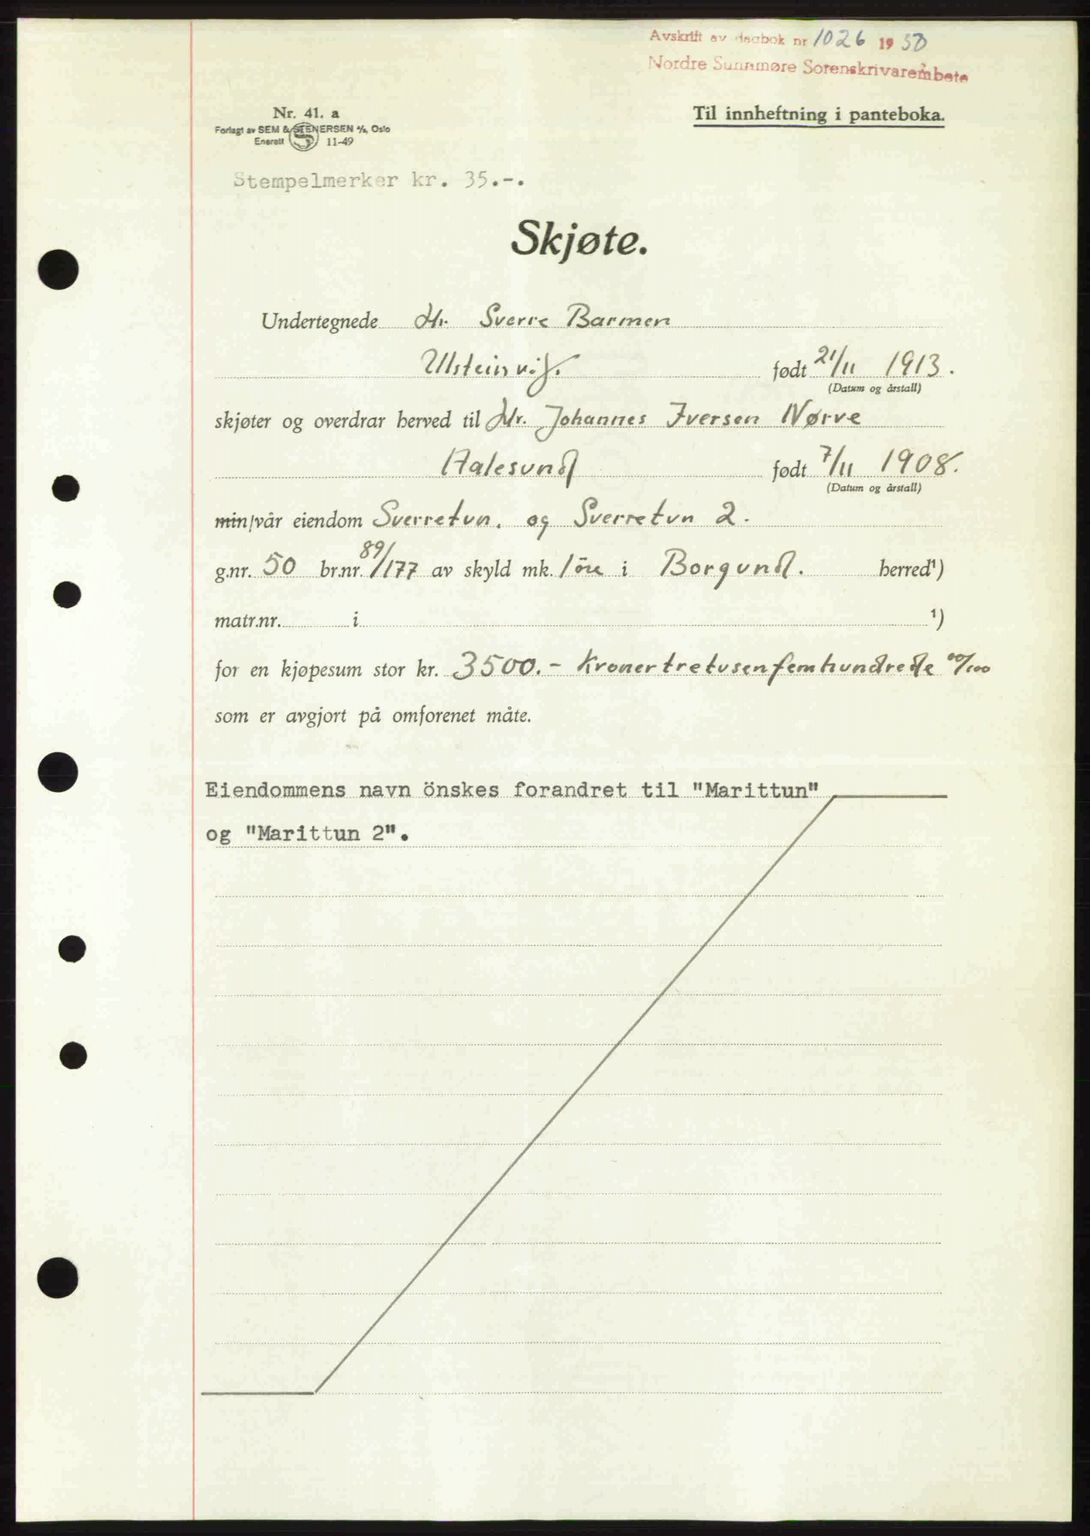 Avskrift av dagbok nr 1026 1950
Nordre Sunnmøre Sorenskrivarembete
Nr. 41. a
Forlagt av SEM & STENERSEN A/S, Oslo
Enerett 11-49
Til innheftning i panteboka.
Stempelmerker kr. 35.-.
Skjøte.
Undertegnede Hr. Sverre Barmen
Ulsteinvik. født 21/11 1913.
(Datum og årstall)
skjøter og overdrar herved til Hr. Johannes Iversen Nørve
Aalesund født 7/11 1908.
(Datum og årstall)
min/vår eiendom Sverretun. og Sverretun 2.
g.nr. 50 br.nr. 89/177 av skyld mk. 1 öre i Borgund. herred¹)
matr.nr. i ¹)
for en kjøpesum stor kr. 3500.- Kronertretusenfemhundrede 00/100
som er avgjort på omforenet måte.
Eiendommens navn önskes forandret til "Marittun"
og "Marittun 2".